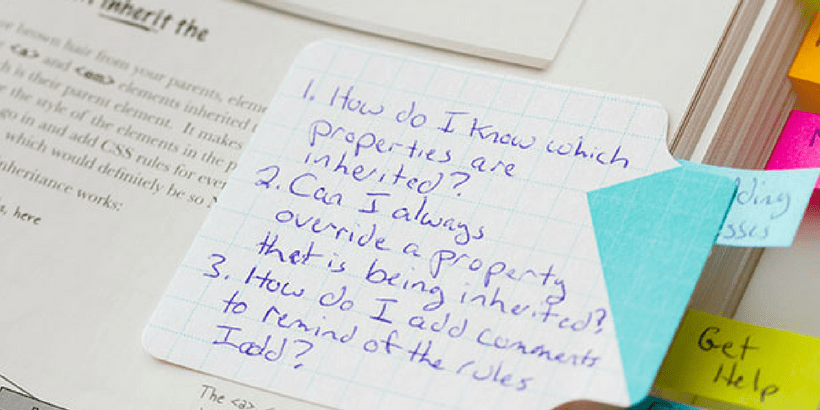 inherit the
brown hair from your parents,
<a> and <em> elements inherited
is their parent element. It makes
the style of the elements in the
go in and add CSS rules for
which would definitely be so
inheritance works:
here
1. How do I know which
properties are
inherited?
2. Can I always
override a property
that is being inherited?
3. How do I add comments
to remind of the rules
I add?
The <a>
Get
Help